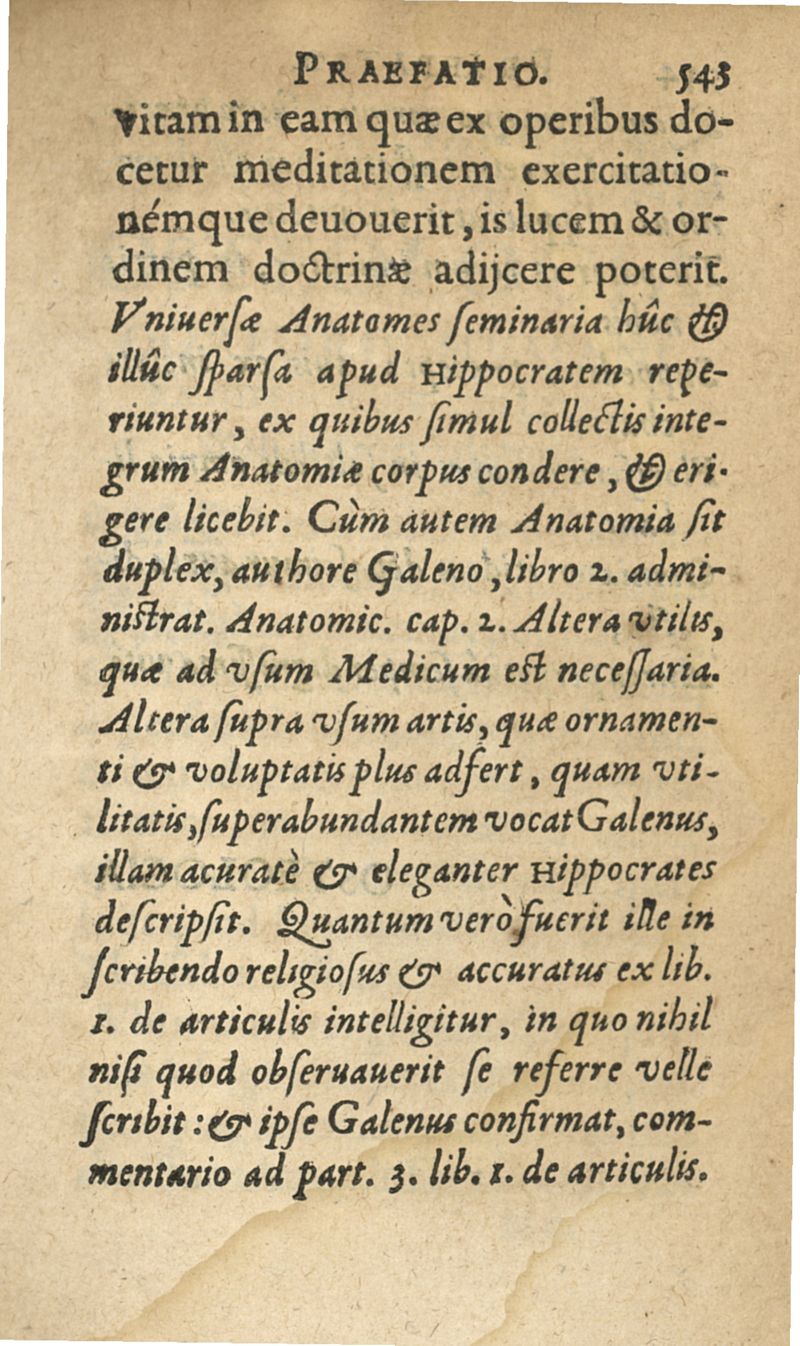 PRAEFATIO. 543
vitam in eam quæ ex operibus do-
cetur meditationem exercitatio-
némque deuouerit, is lucem & or-
dinem doctrinæ adijcere poterit.
Vniuerſæ Anatomes ſeminaria hûc &
illûc ſparſa apud Hippocratem repe-
riuntur, ex quibus ſimul collectis inte-
grum Anatomiæ corpus condere, & eri-
gere licebit. Cùm autem Anatomia ſit
duplex, authore Galeno, libro 2. admi-
niſtrat. Anatomic. cap. 2. Altera vtilis,
quæ ad vſum Medicum eſt neceſſaria.
Altera ſupra vſum artis, quæ ornamen-
ti & voluptatis plus adfert, quam vti-
litatis, ſuperabundantem vocat Galenus,
illam acuratè & eleganter Hippocrates
deſcripſit. Quantum verò fuerit ille in
ſcribendo religioſus & accuratus ex lib.
1. de articulis intelligitur, in quo nihil
niſi quod obſeruauerit ſe referre velle
ſcribit: & ipſe Galenus confirmat, com-
mentario ad part. 3. lib. 1. de articulis.